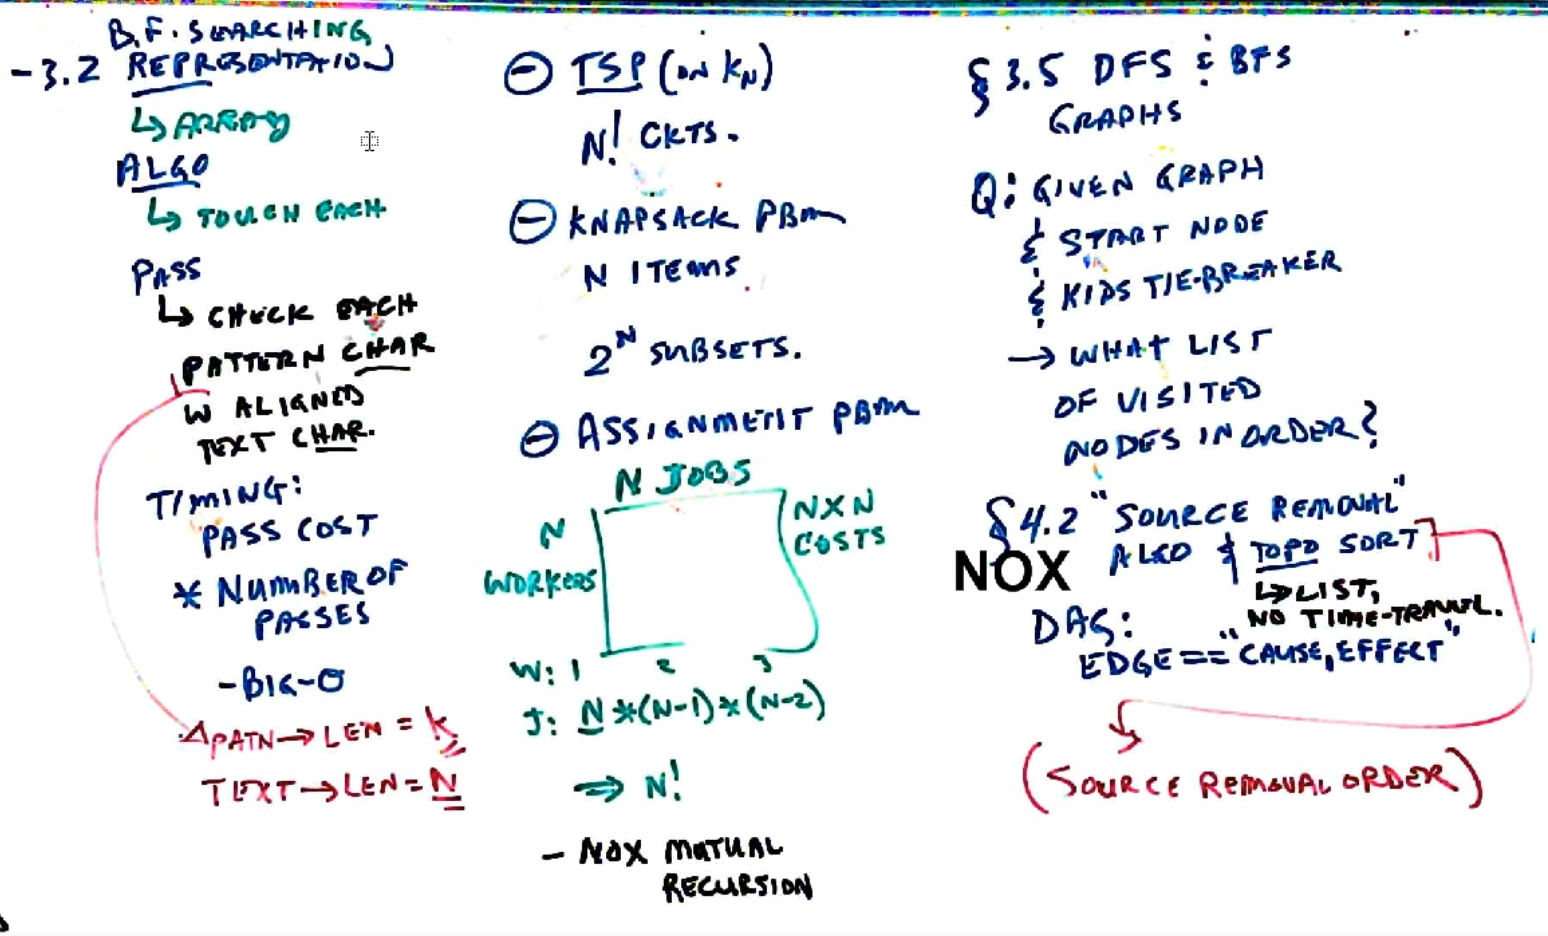 B.F. SEARCHING
- 3.2 REPRESENTATION
↳ ARRAY
ALGO
↳ TOUCH EACH
PASS
↳ CHECK EACH
PATTERN CHAR
W ALIGNED
TEXT CHAR.
TIMING:
PASS COST
* NUMBER OF
PASSES
- BIG-O
PATN → LEN = K
TEXT → LEN = N
⊖ TSP (ON KN)
N! CKTS.
⊖ KNAPSACK PBM
N ITEMS
2^N SUBSETS.
⊖ ASSIGNMENT PBM
N JOBS
N
WORKERS
NXN
COSTS
W: 1 2 3
J: N*(N-1)*(N-2)
⇒ N!
- NOX MUTUAL
RECURSION
§ 3.5 DFS & BFS
GRAPHS
Q: GIVEN GRAPH
& START NODE
& KIDS TIE-BREAKER
→ WHAT LIST
OF VISITED
NODES IN ORDER?
§ 4.2 "SOURCE REMOVAL"
NOX ALGO & TOPO SORT
↳ LIST,
NO TIME-TRAVEL.
DAG:
EDGE == "CAUSE, EFFECT"
(SOURCE REMOVAL ORDER)